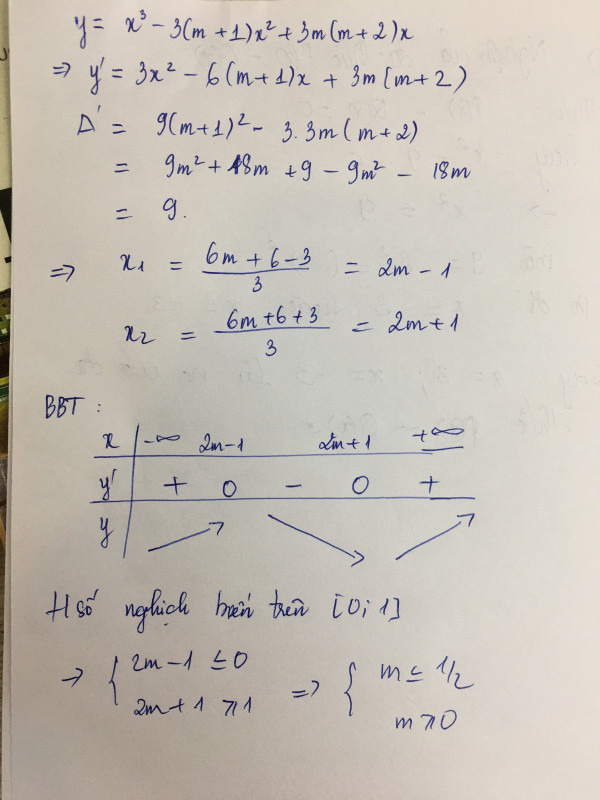 y = x³ - 3(m+1)x² + 3m(m+2)x
=> y' = 3x² - 6(m+1)x + 3m(m+2)
Δ' = 9(m+1)² - 3.3m(m+2)
= 9m² + 18m + 9 - 9m² - 18m
= 9.
=> x₁ = (6m + 6 - 3)/3 = 2m - 1
x₂ = (6m + 6 + 3)/3 = 2m + 1
BBT :
x -∞ 2m-1 2m+1 +∞
y' + 0 - 0 +
y ↗ ↘ ↗
H số nghịch biến trên [0; 1]
→ { 2m - 1 ≤ 0 => { m ≤ 1/2
2m + 1 ≥ 1 m ≥ 0